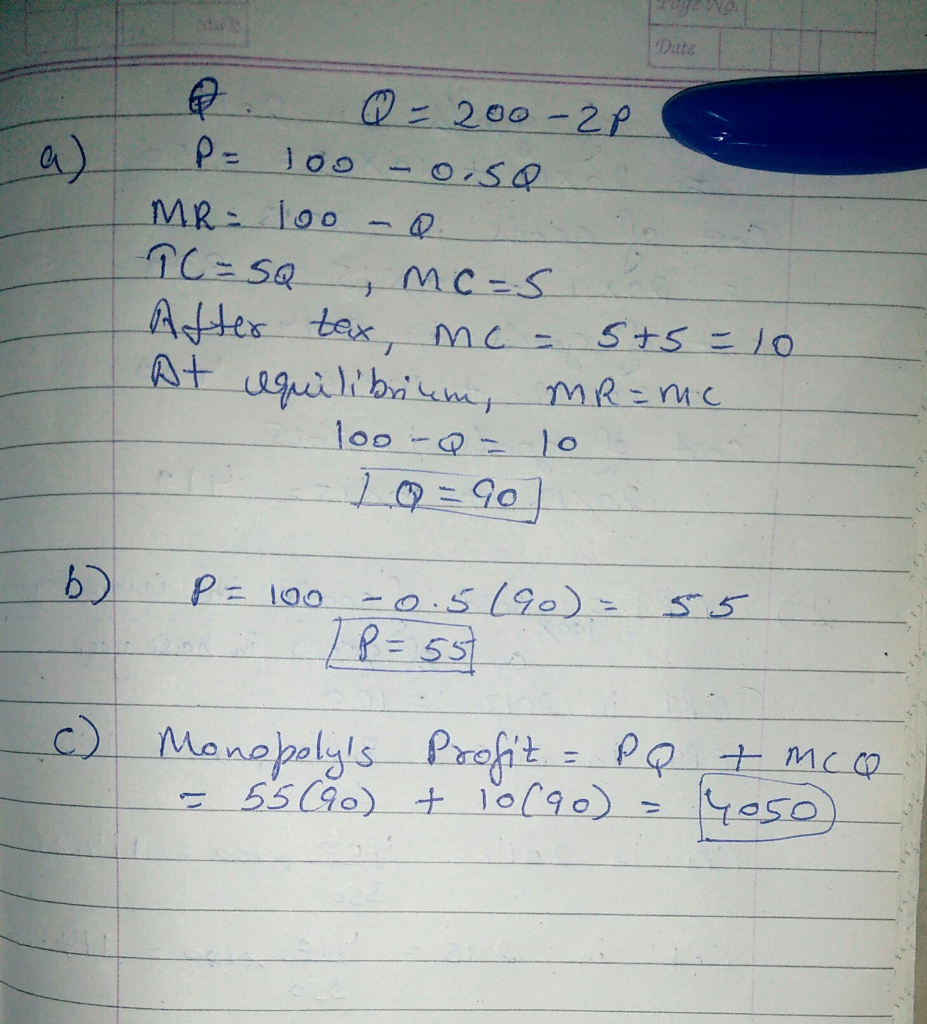 Page No.
Date
Q = 200 - 2P
a) P = 100 - 0.5Q
MR = 100 - Q
TC = 5Q , MC = 5
After tax, MC = 5+5 = 10
At equilibrium, MR = MC
100 - Q = 10
Q = 90
b) P = 100 - 0.5 (90) = 55
P = 55
c) Monopoly's Profit = PQ + MCQ
= 55(90) + 10(90) = 4050